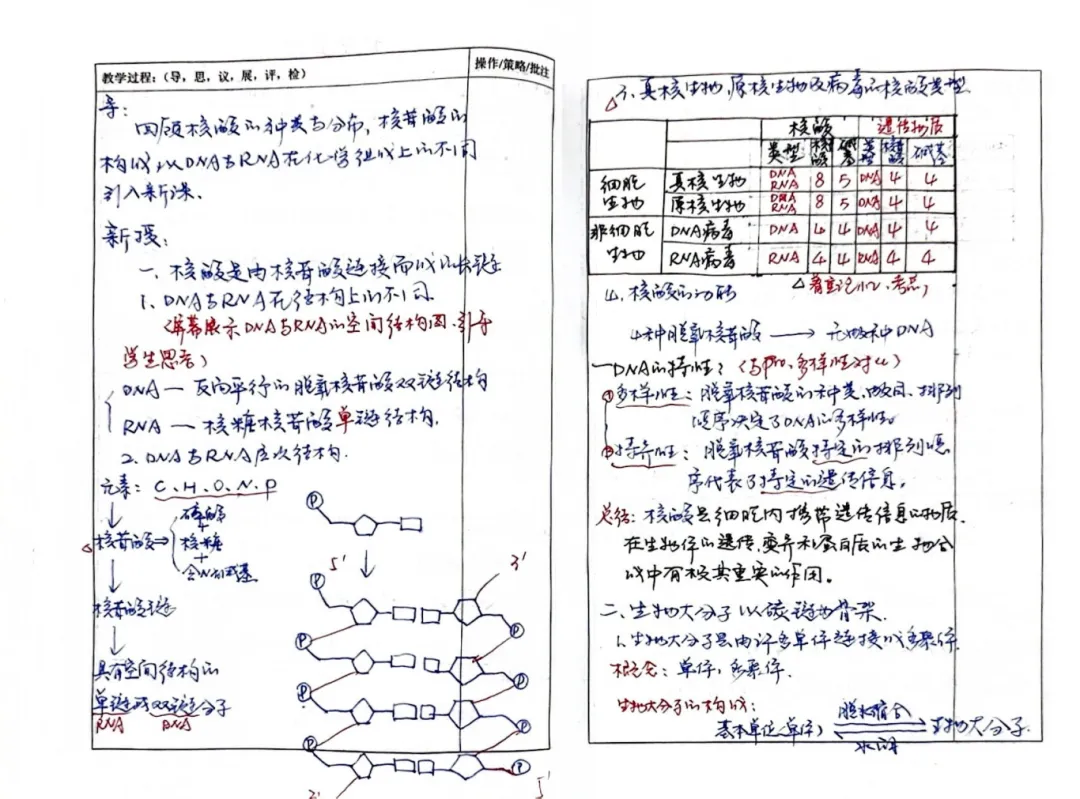 教学过程：（导，思，议，展，评，检）
操作/策略/批注
导：
回顾核酸的种类与分布，核苷酸的
构成以DNA与RNA在化学组成上的不同
引入新课。
新授：
一、核酸是由核苷酸连接而成的长链
1、DNA与RNA在结构上的不同.
（屏幕展示DNA与RNA的空间结构图.引导
学生思考）
DNA — 反向平行的脱氧核苷酸双链结构
RNA — 核糖核苷酸单链结构.
2、DNA与RNA层次结构.
元素：C.H.O.N.P
核苷酸⇒ 磷酸
+
核糖
+
含N的碱基
核苷酸链
具有空间结构的
单链或双链分子
RNA DNA
P
5' 3'
P
P P
P P
P P
P P
3' 5'
3、真核生物，原核生物及病毒的核酸类型
核酸 遗传物质
类型 核苷酸 碱基 类型 核苷酸 碱基
细胞生物 真核生物 DNA RNA 8 5 DNA 4 4
原核生物 DNA RNA 8 5 DNA 4 4
非细胞生物 DNA病毒 DNA 4 4 DNA 4 4
RNA病毒 RNA 4 4 RNA 4 4
4、核酸的功能 △着重记忆、考点，
4种脱氧核苷酸 ⟶ 无数种DNA
DNA的特性：（与pro.多样性对比）
①多样性：脱氧核苷酸的种类.数目.排列
顺序决定了DNA的多样性。
②特异性：脱氧核苷酸特定的排列顺
序代表了特定的遗传信息。
总结：核酸是细胞内携带遗传信息的物质.
在生物体的遗传，变异和蛋白质的生物合
成中有极其重要的作用。
二、生物大分子以碳链为骨架.
1、生物大分子是由许多单体连接成多聚体.
概念：单体，多聚体.
生物大分子的构成：
基本单位（单体） 脱水缩合 生物大分子.
水解